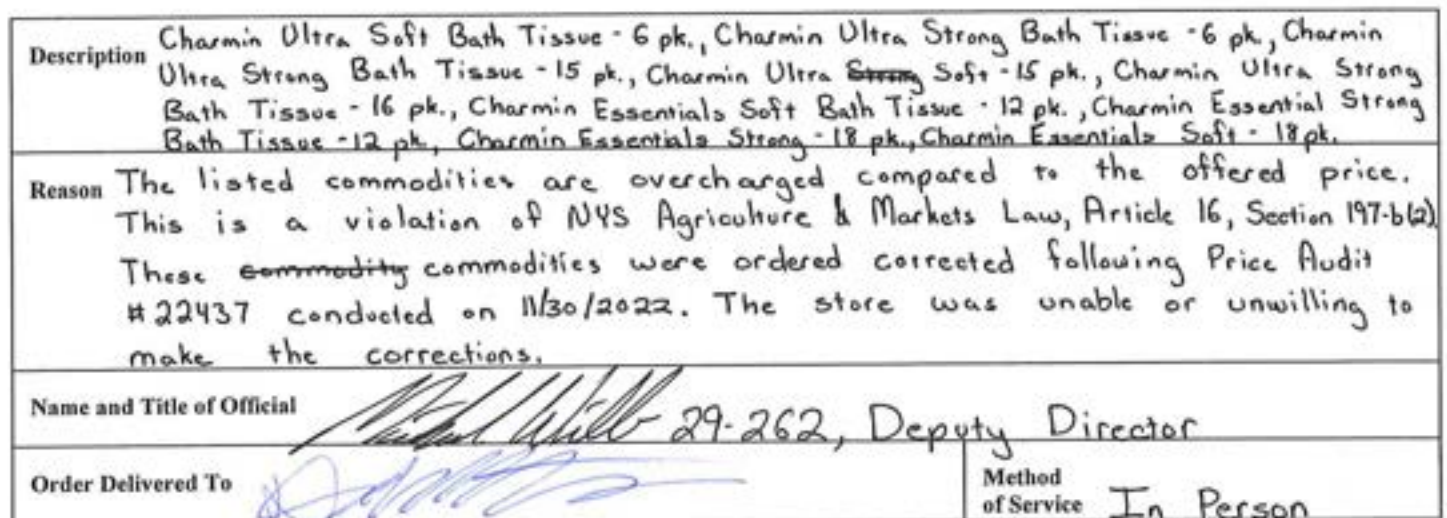 Description Charmin Ultra Soft Bath Tissue - 6 pk., Charmin Ultra Strong Bath Tissue - 6 pk., Charmin
Ultra Strong Bath Tissue - 15 pk., Charmin Ultra Strong Soft - 15 pk., Charmin Ultra Strong
Bath Tissue - 16 pk., Charmin Essentials Soft Bath Tissue - 12 pk., Charmin Essential Strong
Bath Tissue - 12 pk., Charmin Essentials Strong - 18 pk., Charmin Essentials Soft - 18 pk.
Reason The listed commodities are overcharged compared to the offered price.
This is a violation of NYS Agriculture & Markets Law, Article 16, Section 197-b(2).
These commodity commodities were ordered corrected following Price Audit
#22437 conducted on 11/30/2022. The store was unable or unwilling to
make the corrections.
Name and Title of Official 29-262, Deputy Director
Order Delivered To
Method
of Service In Person